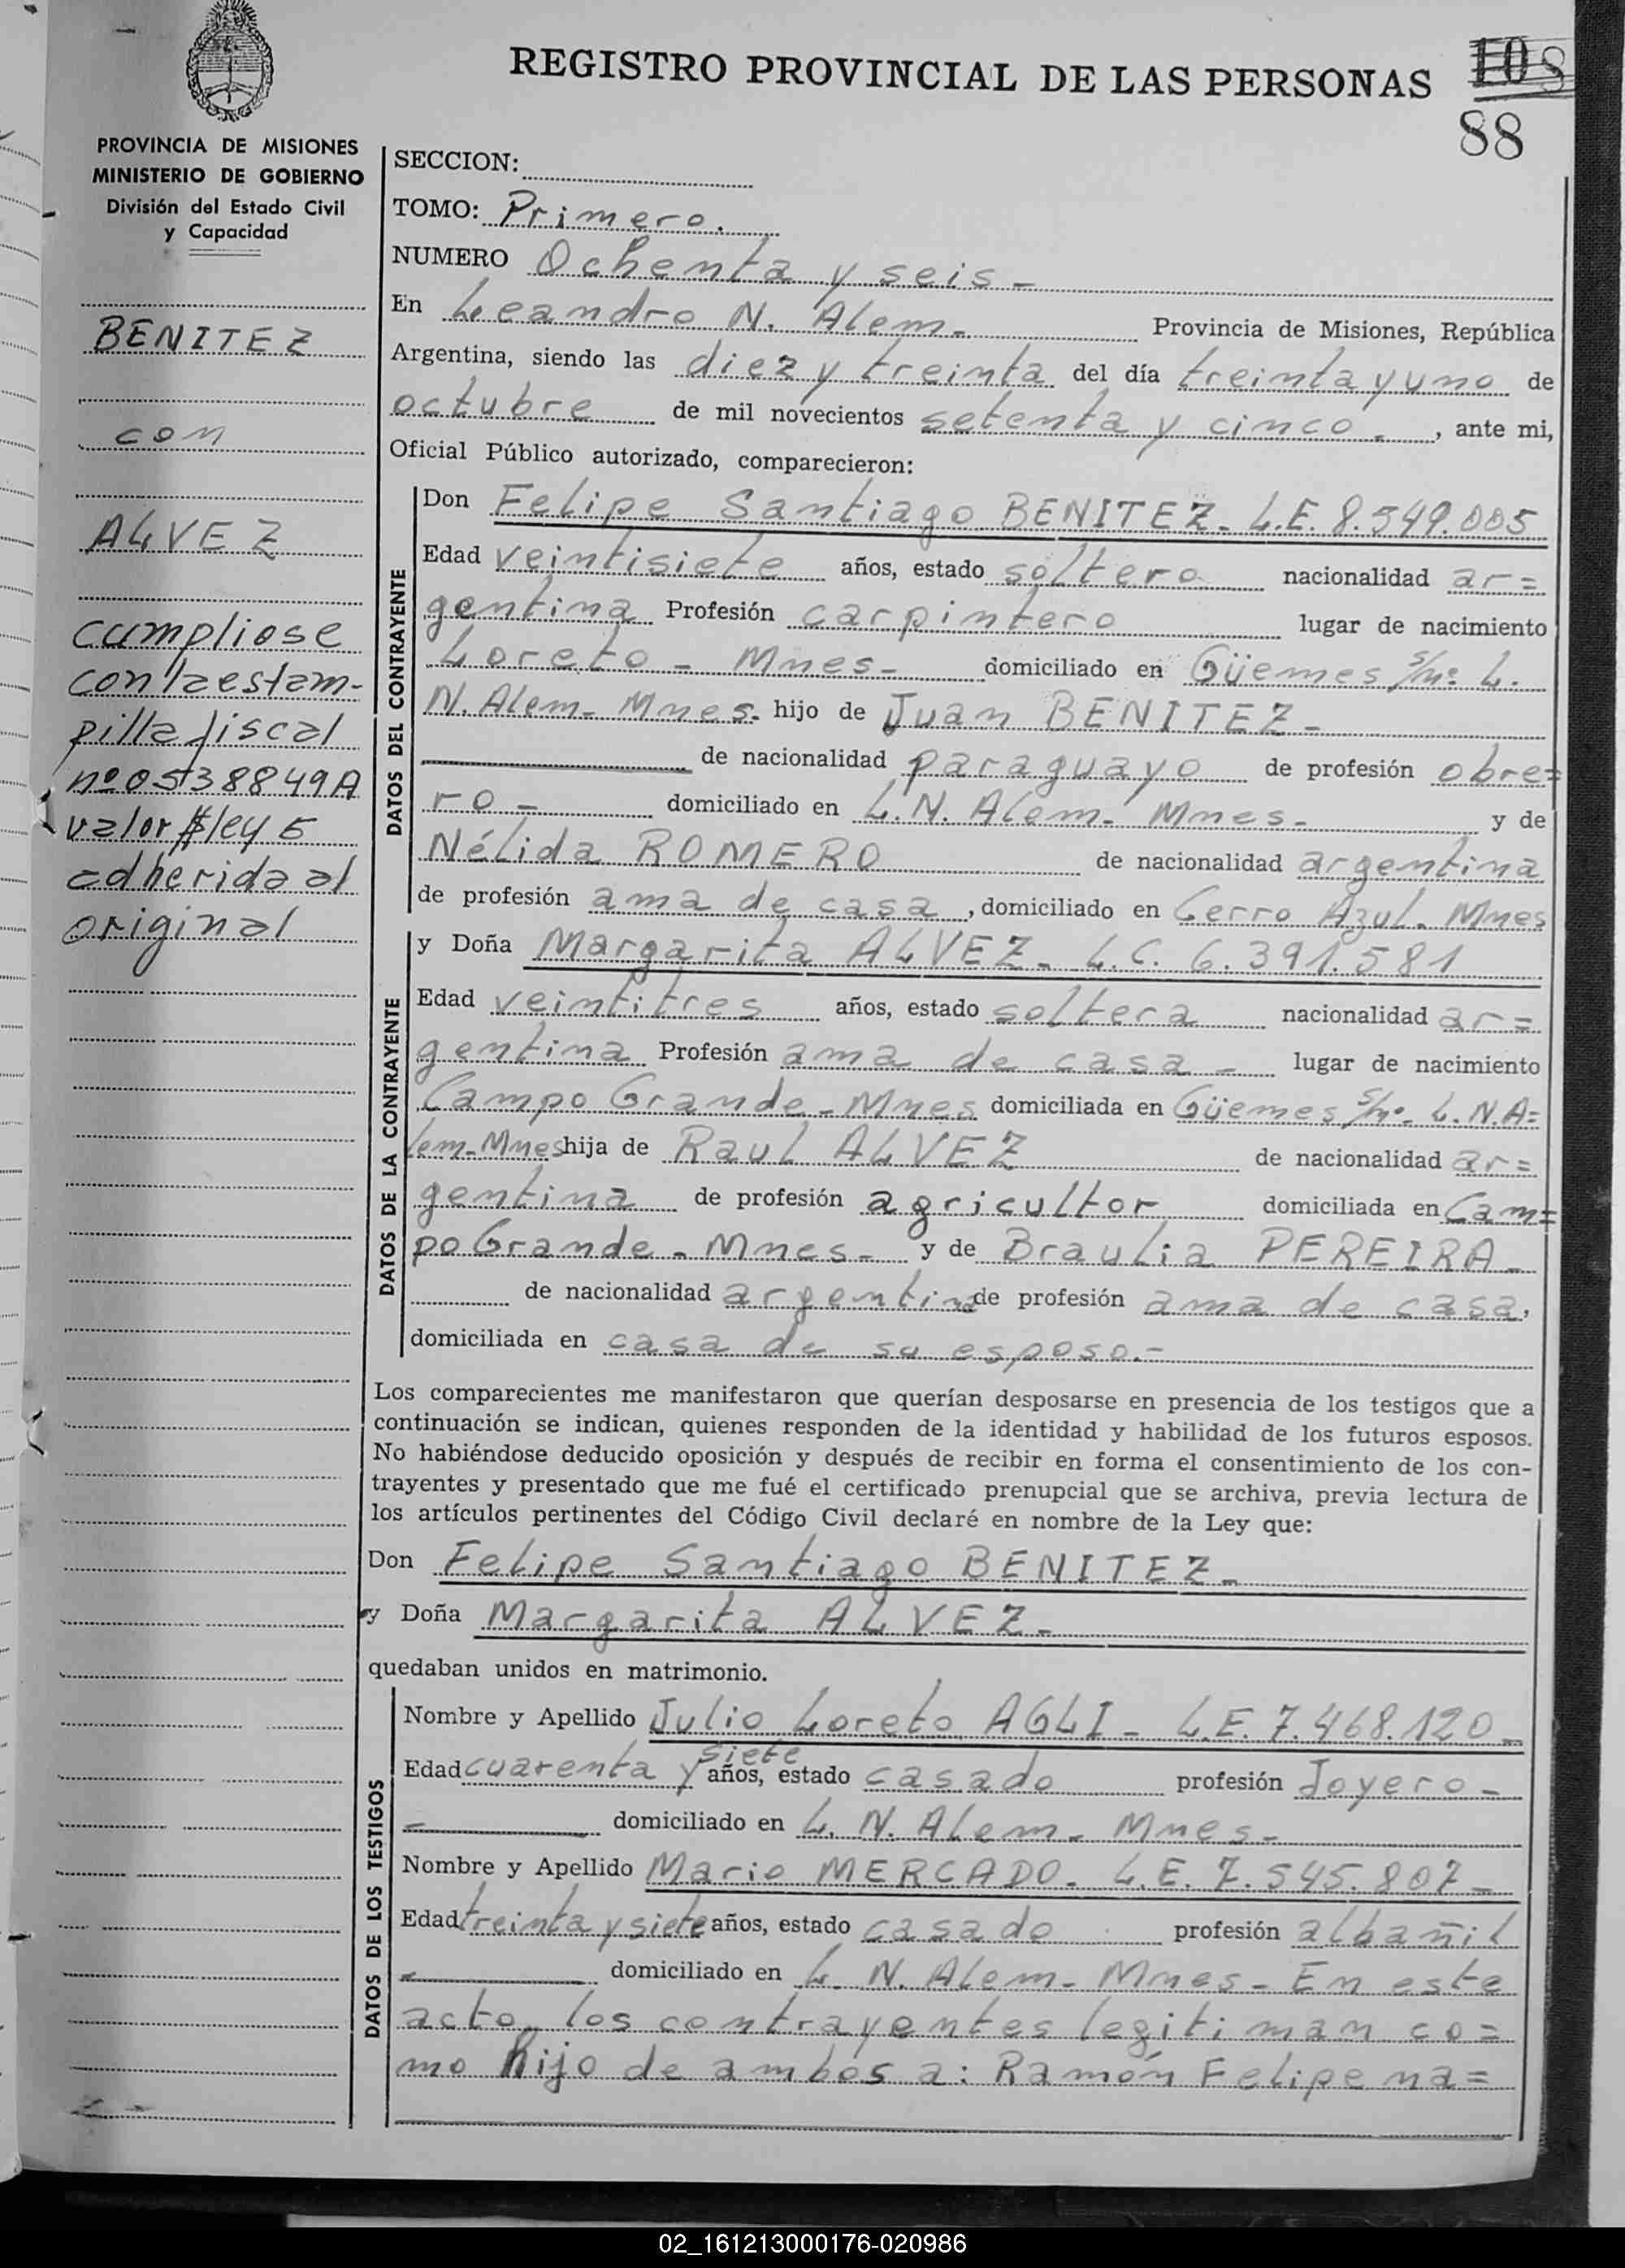 REGISTRO PROVINCIAL DE LAS PERSONAS
108
88
PROVINCIA DE MISIONES
MINISTERIO DE GOBIERNO
División del Estado Civil
y Capacidad
BENITEZ
con
ALVEZ
cumpliose
con la estam-
pilla fiscal
nº 0538849A
valor $ ley 5
adherida al
original
SECCION:
TOMO: Primero.
NUMERO Ochenta y seis -
En Leandro N. Alem - Provincia de Misiones, República
Argentina, siendo las diez y treinta del día treinta y uno de
octubre de mil novecientos setenta y cinco. , ante mi,
Oficial Público autorizado, comparecieron:
DATOS DEL CONTRAYENTE
Don Felipe Santiago BENITEZ - L.E. 8.549.005
Edad veintisiete años, estado soltero nacionalidad ar=
gentina Profesión carpintero lugar de nacimiento
Loreto - Mnes - domiciliado en Güemes s/nº L.
N. Alem - Mnes. hijo de Juan BENITEZ -
de nacionalidad paraguayo de profesión obre=
ro - domiciliado en L. N. Alem - Mnes - y de
Nélida ROMERO de nacionalidad argentina
de profesión ama de casa , domiciliado en Cerro Azul - Mnes
DATOS DE LA CONTRAYENTE
y Doña Margarita ALVEZ - L.C. 6.391.581
Edad veintitres años, estado soltera nacionalidad ar=
gentina Profesión ama de casa - lugar de nacimiento
Campo Grande - Mnes domiciliada en Güemes s/nº - L.N.A=
lem - Mnes hija de Raul ALVEZ de nacionalidad ar=
gentina de profesión agricultor domiciliada en Cam=
po Grande - Mnes - y de Braulia PEREIRA -
de nacionalidad argentina de profesión ama de casa,
domiciliada en casa de su esposo.-
Los comparecientes me manifestaron que querían desposarse en presencia de los testigos que a
continuación se indican, quienes responden de la identidad y habilidad de los futuros esposos.
No habiéndose deducido oposición y después de recibir en forma el consentimiento de los con-
trayentes y presentado que me fué el certificado prenupcial que se archiva, previa lectura de
los artículos pertinentes del Código Civil declaré en nombre de la Ley que:
Don Felipe Santiago BENITEZ -
y Doña Margarita ALVEZ -
quedaban unidos en matrimonio.
DATOS DE LOS TESTIGOS
Nombre y Apellido Julio Loreto AGLI - L.E. 7.468.120 -
Edad cuarenta y siete años, estado casado profesión Joyero -
- domiciliado en L. N. Alem - Mnes -
Nombre y Apellido Mario MERCADO - L.E. 7.545.807 -
Edad treinta y siete años, estado casado profesión albañil
- domiciliado en L. N. Alem - Mnes - En este
acto los contrayentes legitiman co=
mo hijo de ambos a: Ramón Felipe na=
02_161213000176-020986